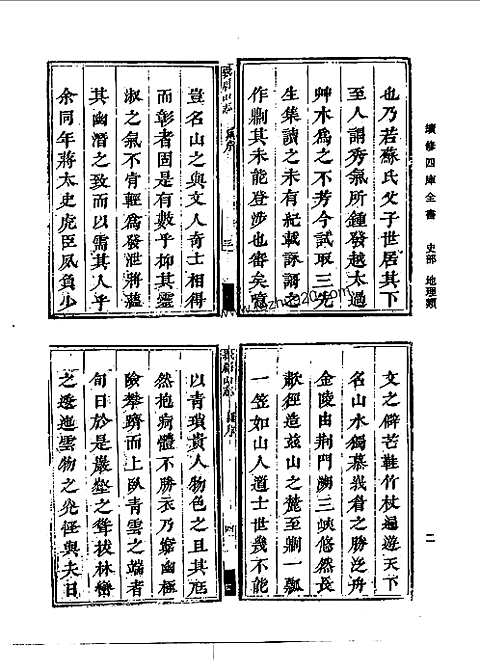 續修四庫全書 史部 地理類
二
也乃若蘇氏父子世居其下
至人謂秀氣所鍾發越太過
艸木為之不芳今試取三先
生集讀之未有紀載詠謌之
作劘其未能登涉也審矣噫
峨眉山志
序
三
豈名山之與文人奇士相得
而彰者固是有數乎抑其靈
淑之氣不肯輕為發泄將蘊
其幽潛之致而以需其人乎
余同年蔣太史虎臣夙負少
文之僻芒鞋竹杖遍遊天下
名山水獨慕峩眉之勝泛舟
金陵由荆門溯三峽悠然長
歗徑造兹山之麓至劘一瓢
一笠如山人道士世幾不能
峨眉山志
序
四
以青瑣貴人物色之且其尫
然抱痾體不勝衣乃窮幽極
險攀躋而上臥青雲之端者
旬日於是巖壑之聳拔林巒
之透迤雲物之光怪與夫日
www.zhutu20.com